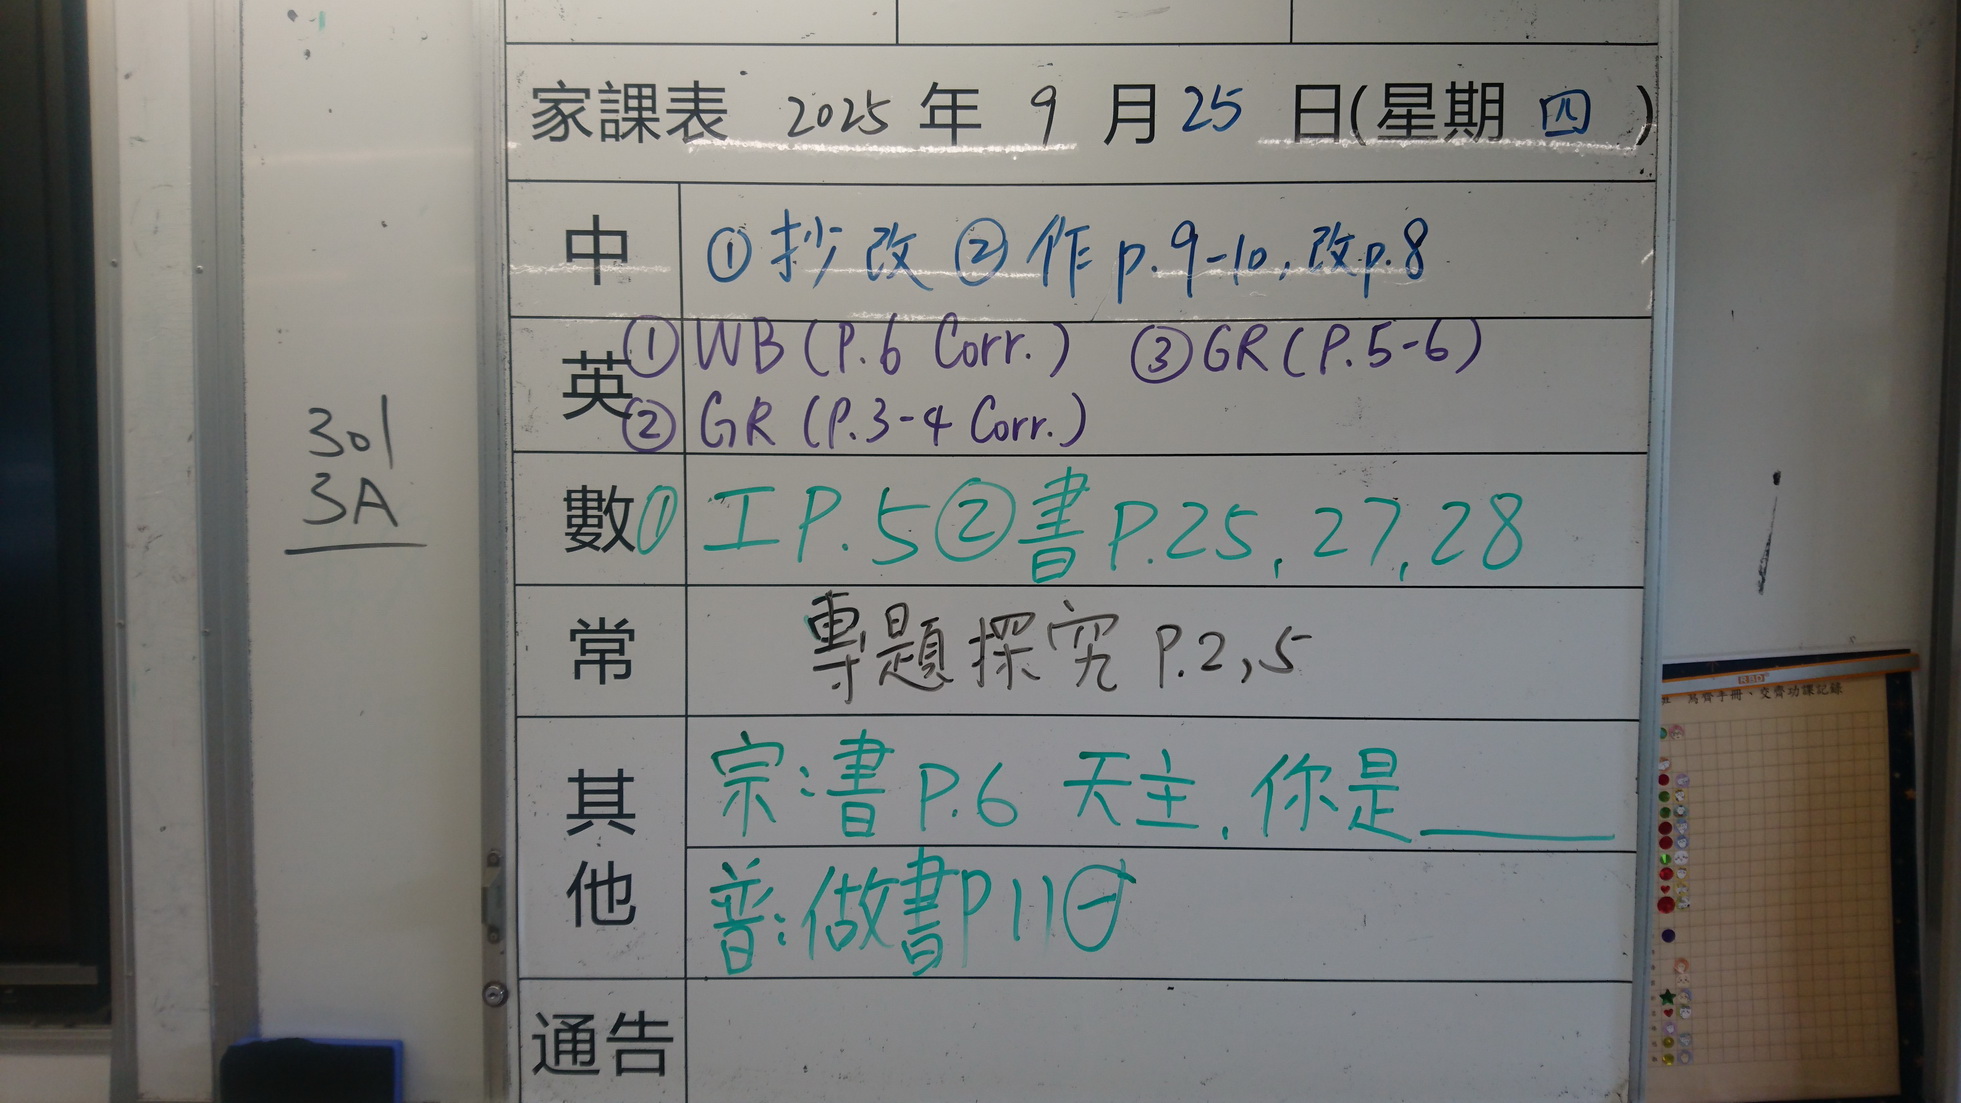 家課表 2025 年 9 月 25 日(星期 四 )
中 ① 抄改 ② 作 p.9-10, 改p.8
英 ① WB (P.6 Corr.) ③ GR (P.5-6)
② GR (P.3-4 Corr.)
數 ① 工 P.5 ② 書 P.25, 27, 28
常 專題探究 P.2, 5
其他 宗:書 P.6 天主, 你是______
普:做書P11
通告
301
3A
RBD
寫齊手冊、交齊功課記錄